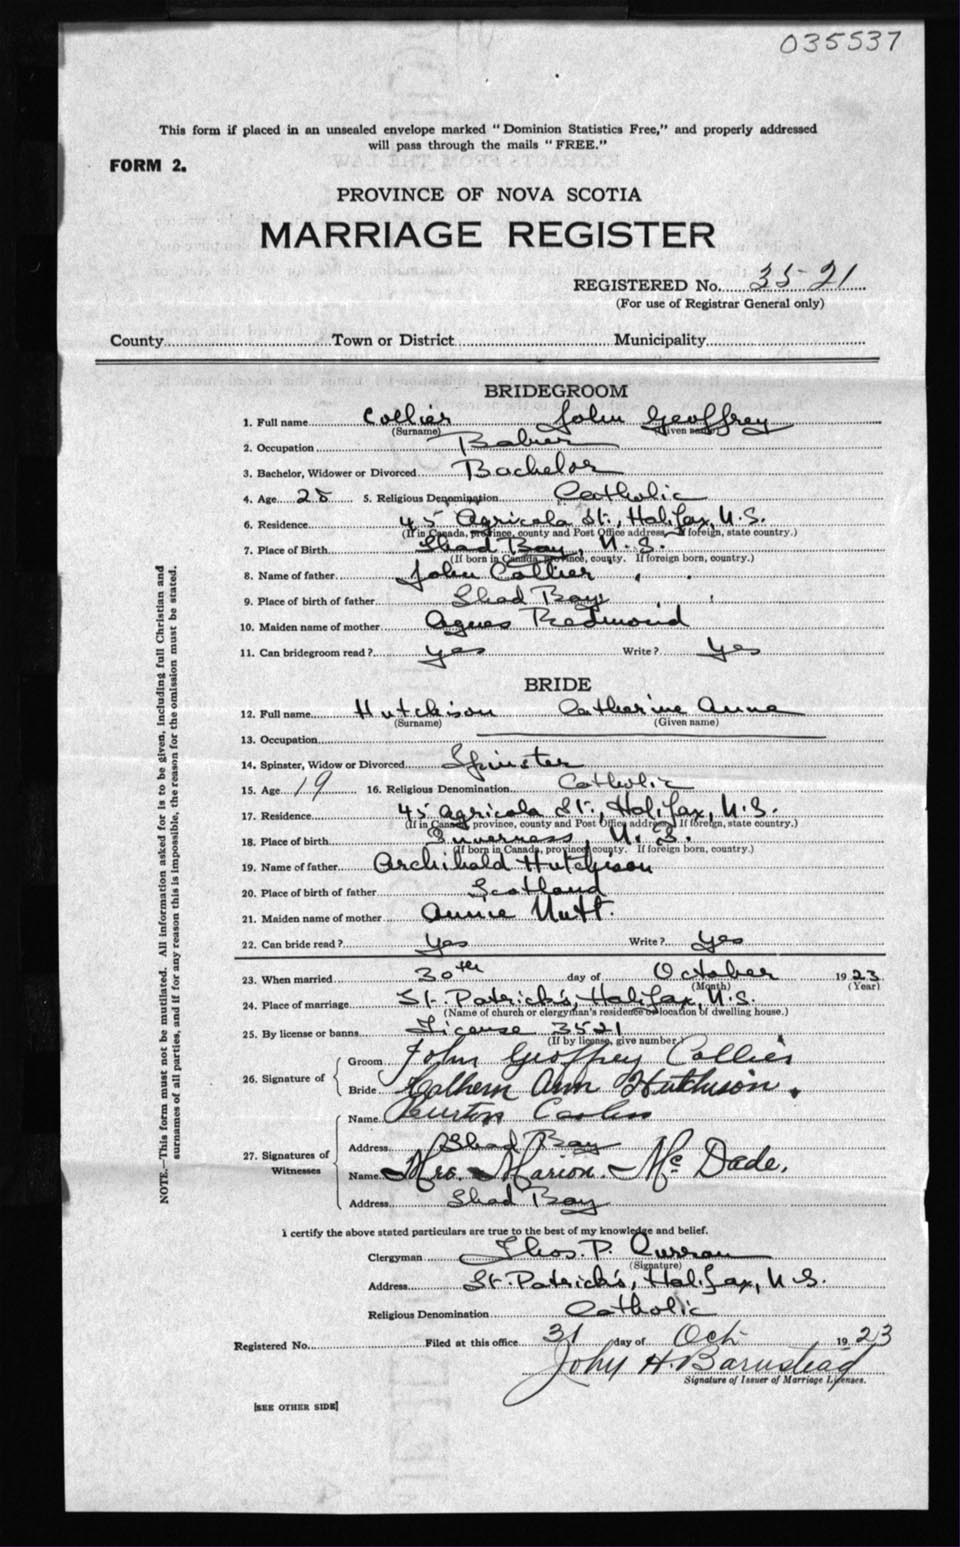 035537
This form if placed in an unsealed envelope marked "Dominion Statistics Free," and properly addressed
will pass through the mails "FREE."
FORM 2.
PROVINCE OF NOVA SCOTIA
MARRIAGE REGISTER
REGISTERED No. 3521
(For use of Registrar General only)
County Town or District Municipality
BRIDEGROOM
1. Full name Collier John Geoffrey
(Surname) (Given name)
2. Occupation
3. Bachelor, Widower or Divorced Bachelor
4. Age 28 5. Religious Denomination Catholic
6. Residence 45 Agricola St., Halifax, N.S.
(If in Canada, province, county and Post Office address. If foreign, state country.)
7. Place of Birth Shad Bay, N.S.
(If born in Canada, province, county. If foreign born, country.)
8. Name of father John Collier
9. Place of birth of father Shad Bay
10. Maiden name of mother Agnes Redmond
11. Can bridegroom read? yes Write? yes
BRIDE
12. Full name Hutchison Catherine Anna
(Surname) (Given name)
13. Occupation
14. Spinster, Widow or Divorced Spinster
15. Age 19 16. Religious Denomination Catholic
17. Residence 45 Agricola St., Halifax, N.S.
(If in Canada, province, county and Post Office address. If foreign, state country.)
18. Place of birth Inverness, N.S.
(If born in Canada, province, county. If foreign born, country.)
19. Name of father Archibald Hutchison
20. Place of birth of father Scotland
21. Maiden name of mother Annie Nutt.
22. Can bride read? yes Write? yes
23. When married 30th day of October 1923
(Month) (Year)
24. Place of marriage St. Patrick's, Halifax, N.S.
(Name of church or clergyman's residence or location of dwelling house.)
25. By license or banns License 3521
(If by license, give number.)
26. Signature of
Groom John Geoffrey Collier
Bride Cathern Ann Hutchison.
27. Signatures of Witnesses
Name Burton
Address Shad Bay
Name Mrs. Marion Mc Dade.
Address Shad Bay
I certify the above stated particulars are true to the best of my knowledge and belief.
Clergyman Thos. P. Curran
(Signature)
Address St. Patrick's, Halifax, N.S.
Religious Denomination Catholic
Registered No. Filed at this office 31 day of Oct 1923
John H. Barnstead
Signature of Issuer of Marriage Licenses.
[SEE OTHER SIDE]
NOTE.—This form must not be mutilated. All information asked for is to be given, including full Christian and
surnames of all parties, and if for any reason this is impossible, the reason for the omission must be stated.